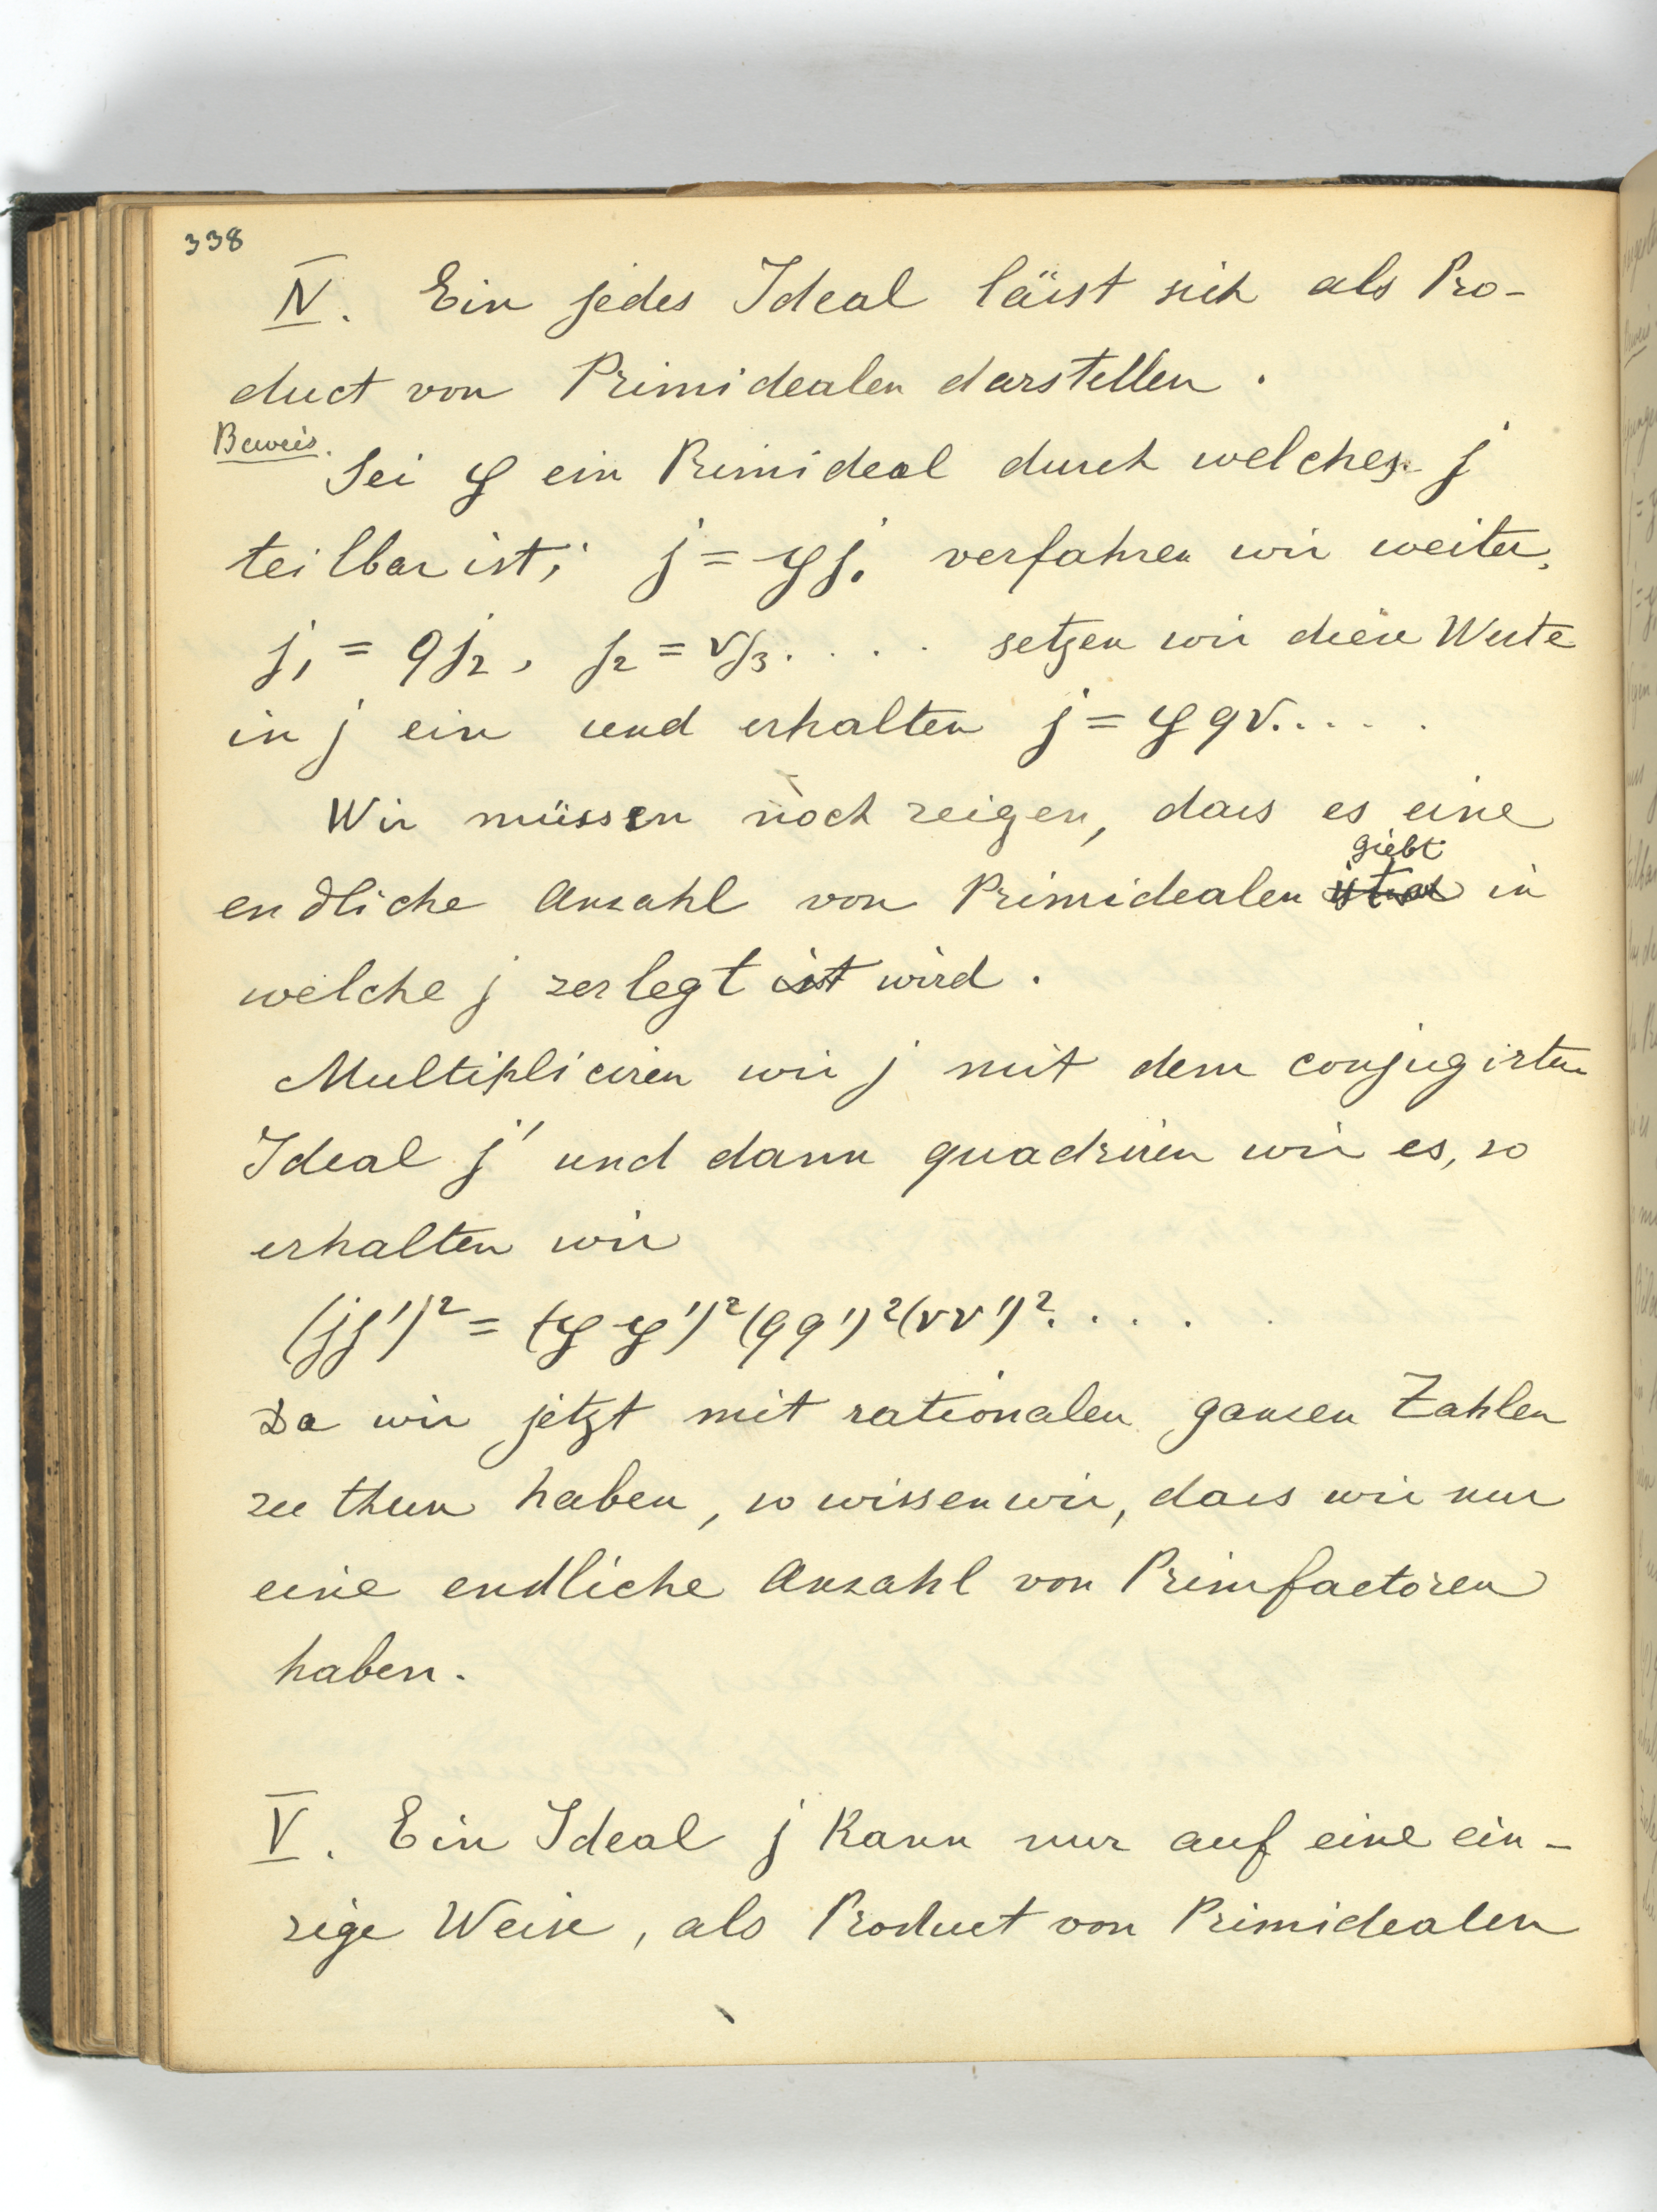 338
IV. Ein jedes Ideal lässt sich als Pro-
duct von Primidealen darstellen.
Beweis.
Sei 𝔭 ein Primideal durch welches j
teilbar ist; j = 𝔭j₁ verfahren wir weiter,
j₁ = qj₂, j₂ = rj₃.... setzen wir diese Werte
in j ein und erhalten j = 𝔭qr.....
Wir müssen noch zeigen, dass es eine
giebt
endliche Anzahl von Primidealen in
welche j zerlegt ist wird.
Multipliciren wir j mit dem conjugirten
Ideal j' und dann quadriren wir es, so
erhalten wir
(jj')² = (𝔭𝔭')²(qq')²(rr')².....
Da wir jetzt mit rationalen ganzen Zahlen
zu thun haben, so wissen wir, dass wir nur
eine endliche Anzahl von Primfactoren
haben.
V. Ein Ideal j kann nur auf eine ein-
zige Weise, als Product von Primidealen